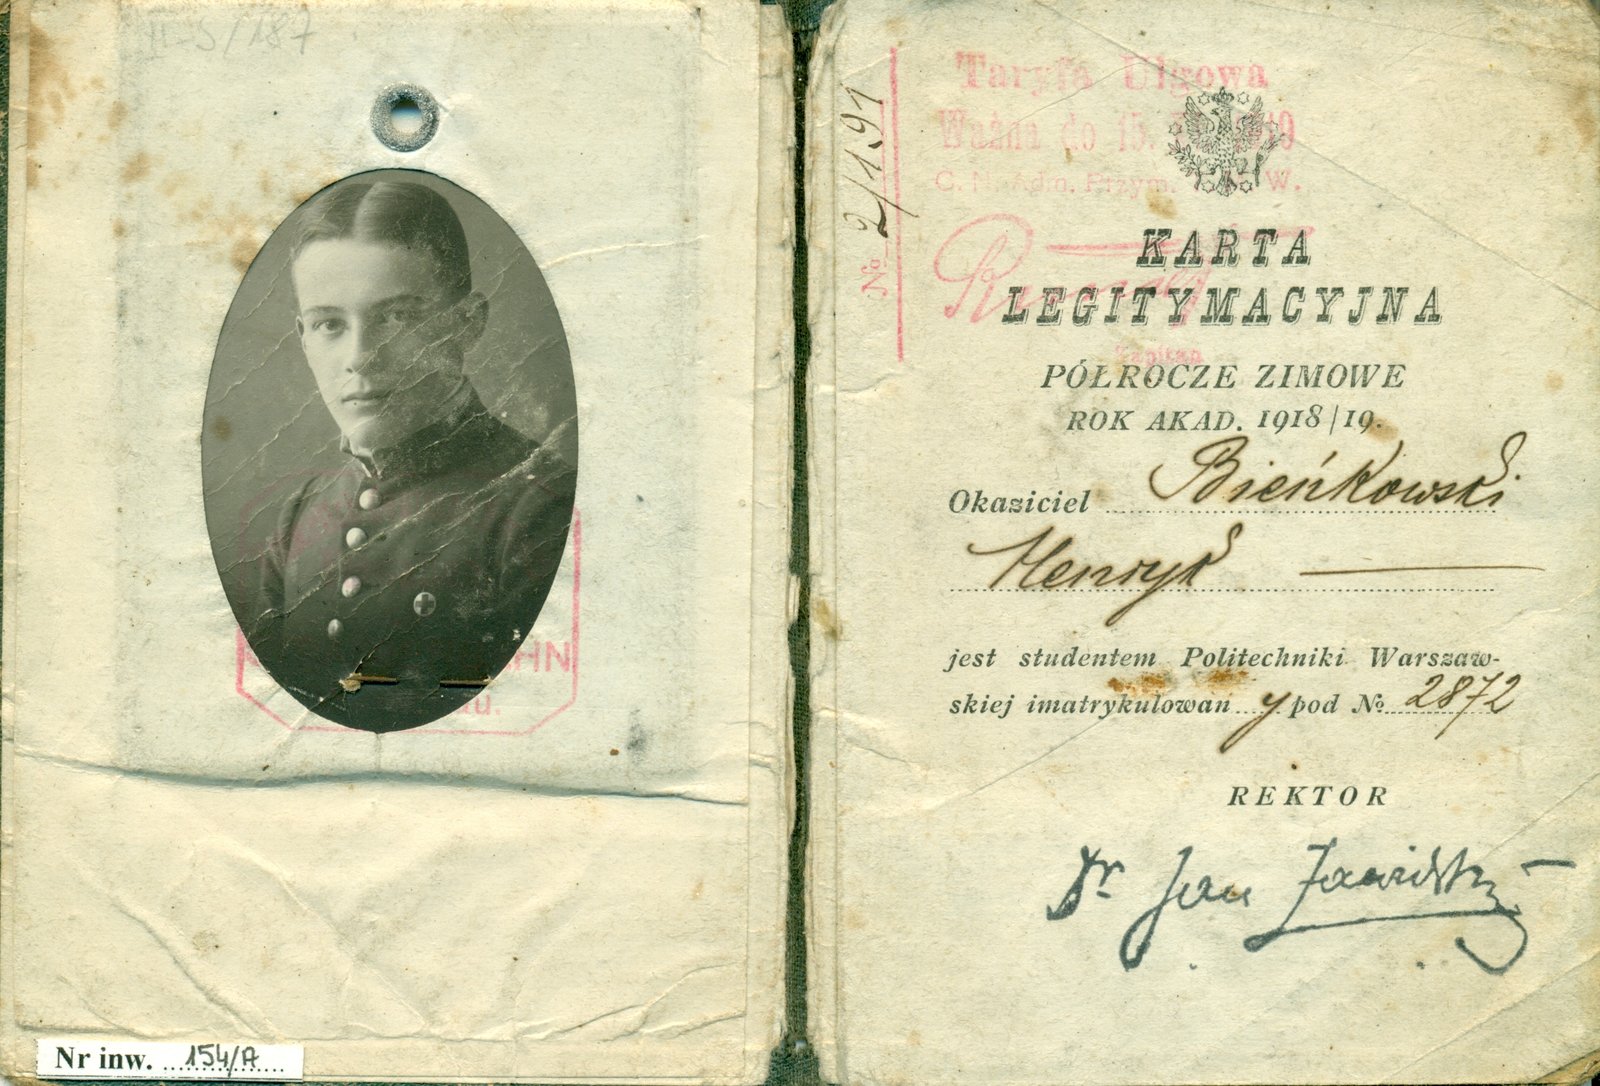 II-S/187
HN
Nr inw. 154/A
Taryfa Ulgowa
Ważna do 15.
№ 2/1.91
KARTA
LEGITYMACYJNA
PÓŁROCZE ZIMOWE
ROK AKAD. 1918/19.
Okaziciel Bieńkowski
Henryk
jest studentem Politechniki Warszaw-
skiej imatrykulowan y pod № 2872
REKTOR
Dr Jan